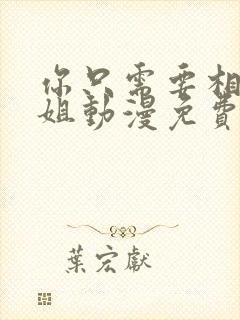 你只需要相
姐動漫免費
葉宏獻